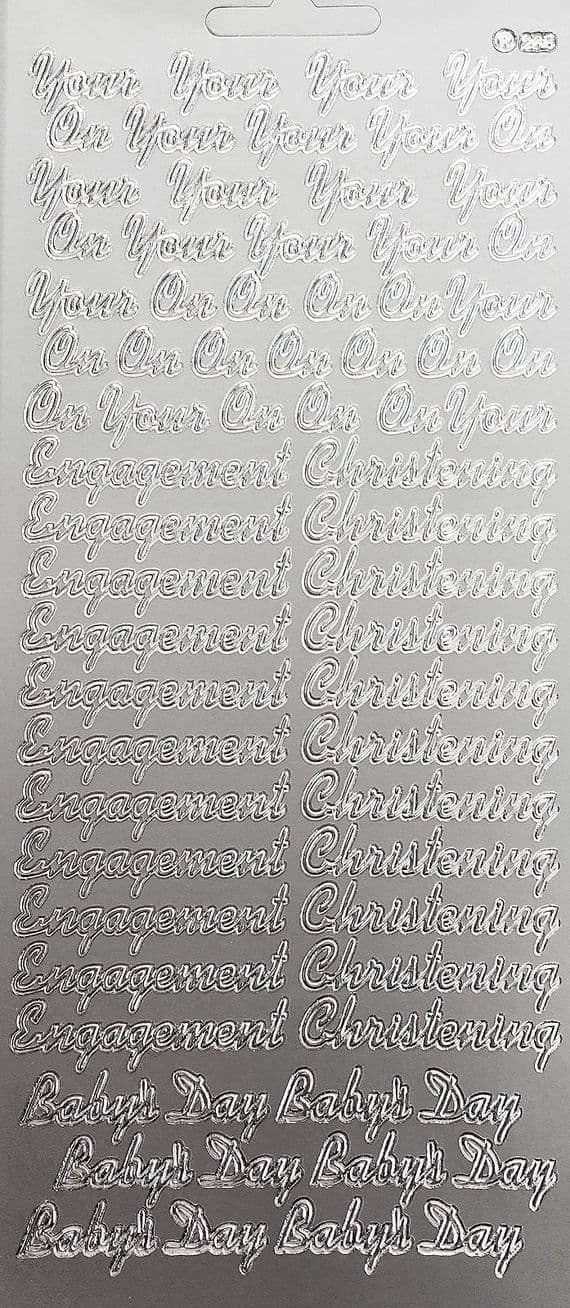 R 236
Your Your Your Your
On Your Your Your On
Your Your Your Your
On Your Your Your On
Your On On On On Your
On On On On On On On
On Your On On On Your
Engagement Christening
Engagement Christening
Engagement Christening
Engagement Christening
Engagement Christening
Engagement Christening
Engagement Christening
Engagement Christening
Engagement Christening
Engagement Christening
Engagement Christening
Baby's Day Baby's Day
Baby's Day Baby's Day
Baby's Day Baby's Day